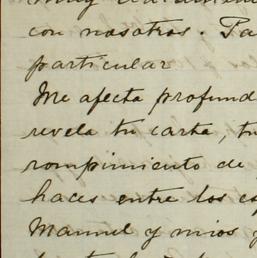 muy
con nosotros. Pa
particular
Me afecta profund
revela tu carta, tu
rompimiento de
haces entre los es
Manuel y mios y